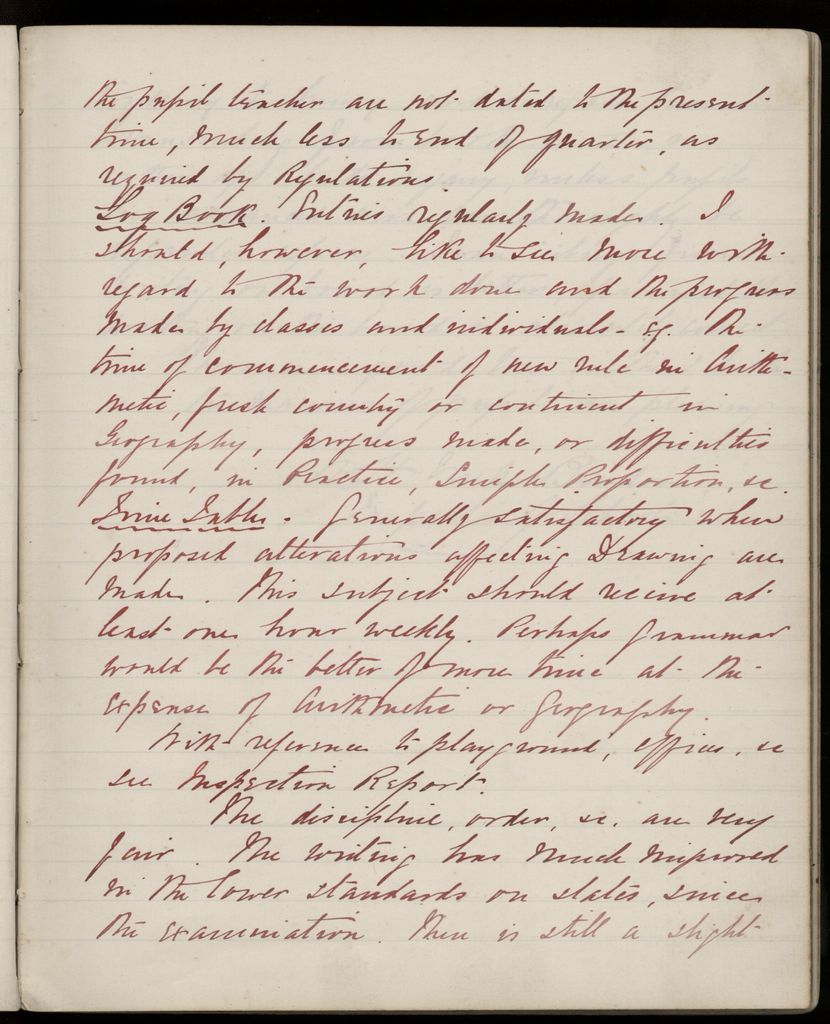 the pupil teacher are not dated to the present
time, much less to end of quarter, as
required by Regulations
Log Book. Entries regularly made. I
should, however, like to see more with
regard to the work done and the progress
made by classes and individuals - eg. the
time of commencement of new rule in Arith-
metic, fresh country or continent in
Geography, progress made, or difficulties
found, in Practice, Simple Proportion, &c.
Time Table. Generally satisfactory when
proposed alterations affecting Drawing are
made. This subject should receive at
least one hour weekly. Perhaps Grammar
would be the better of more time at the
expense of Arithmetic or Geography.
With reference to playground, offices, &c
see Inspection Report.
The discipline, order, &c. are very
fair. The writing has much improved
in the lower standards on slates, since
the examination. There is still a slight